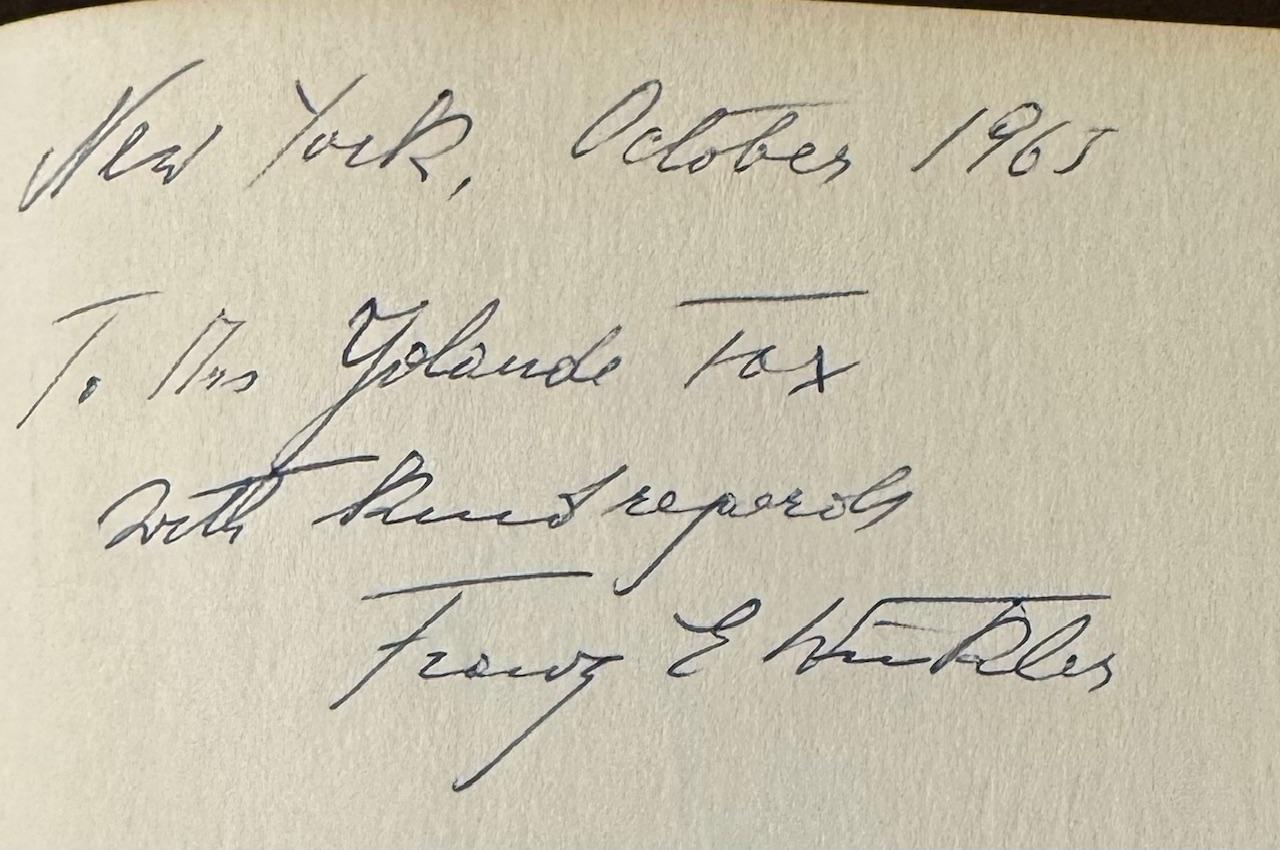 New York, October 1965
To Mrs Yolande Fox
with kind regards
Franz E Winkler